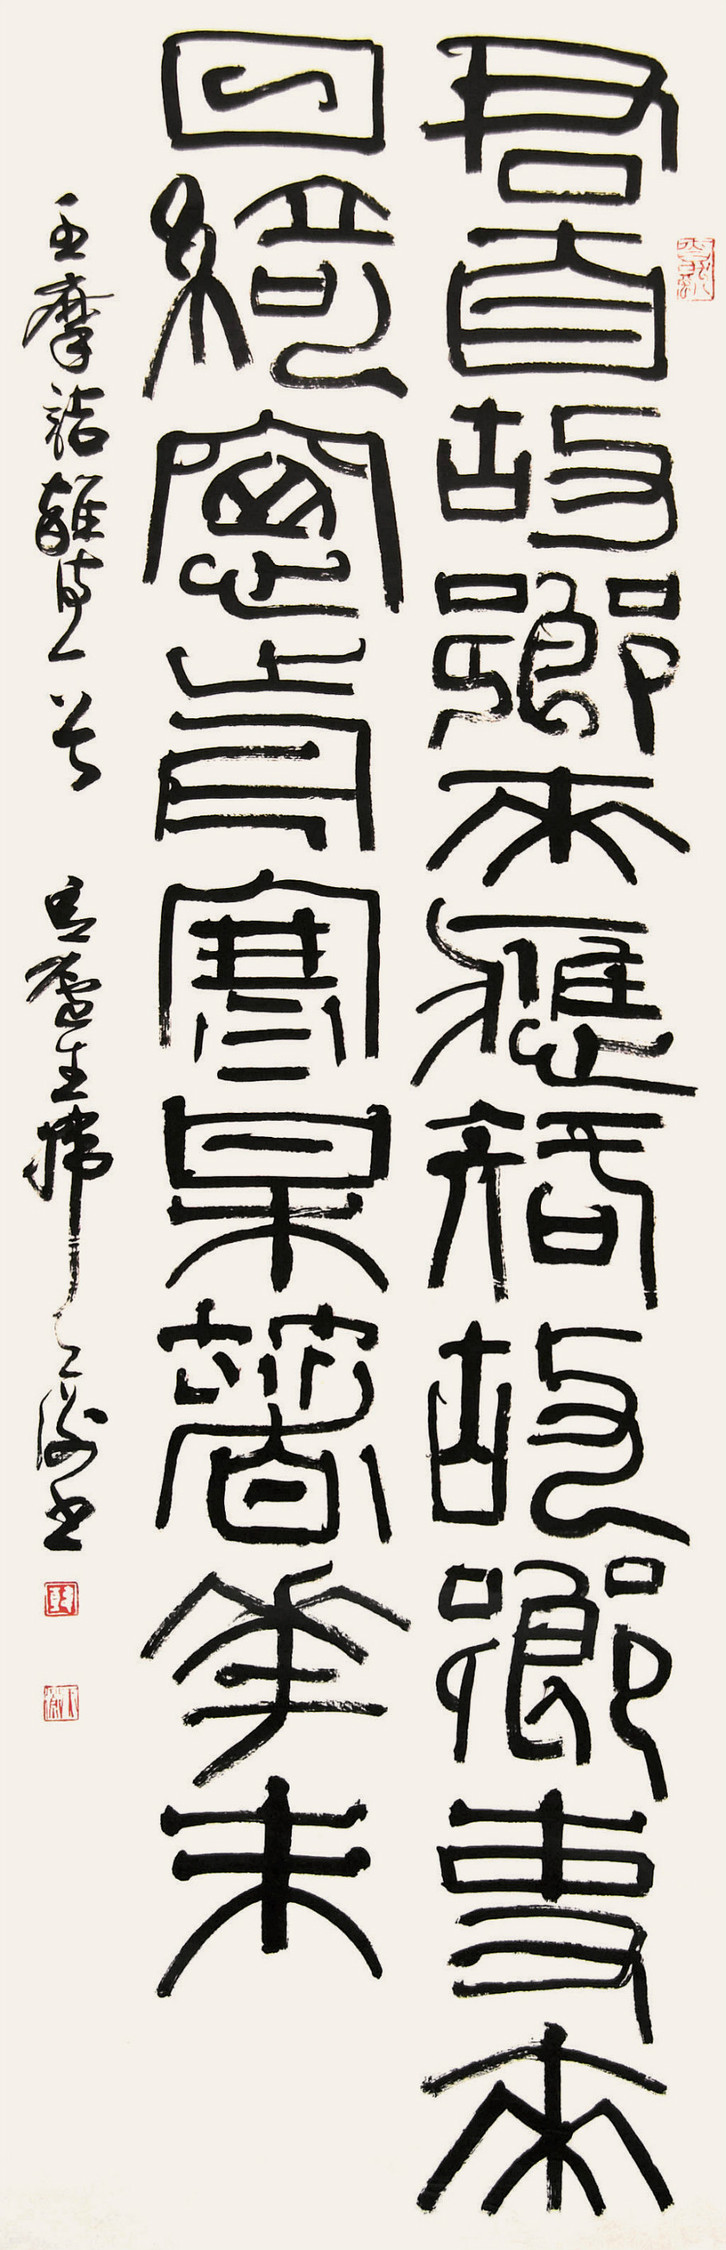 君自故鄉來應知故鄉事來
日綺窗前寒某著花未
王摩詰雜詩一首 廬主 書